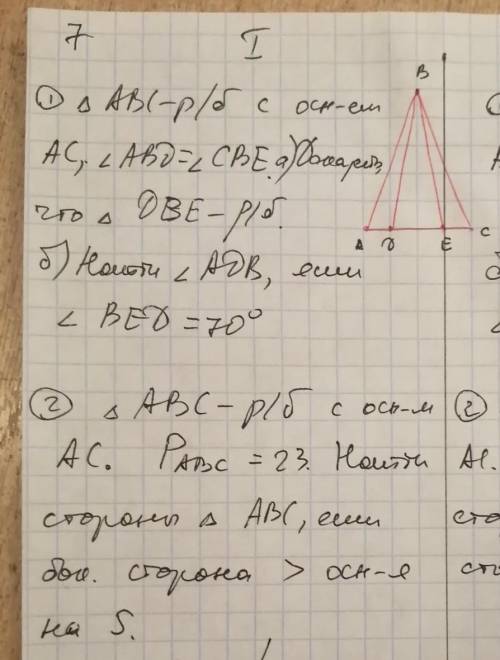 7
I
① △ ABC - р/б с осн-ем
AC, ∠ABD=∠CBE. а) Доказать,
что △ DBE - р/б.
б) Найти ∠ADB, если
∠ BED = 70°
B
A D E C
② △ ABC - р/б с осн-м
AC. P_ABC = 23. Найти
стороны △ ABC, если
бок. сторона > осн-я
на 5.
②
AC.
сто
сто